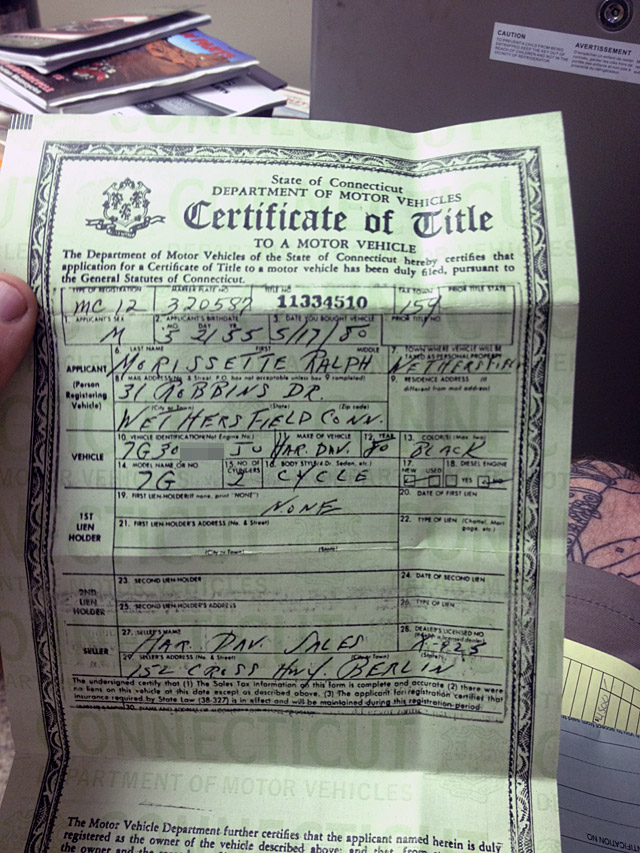 CAUTION
AVERTISSEMENT
TO PREVENT A CHILD FROM BEING
ENTRAPPED, KEEP THE KEY OUT OF
REACH OF CHILDREN AND NOT IN THE
VICINITY OF REFRIGERATOR
CONNECTICUT
State of Connecticut
DEPARTMENT OF MOTOR VEHICLES
Certificate of Title
TO A MOTOR VEHICLE
The Department of Motor Vehicles of the State of Connecticut hereby certifies that
application for a Certificate of Title to a motor vehicle has been duly filed, pursuant to
the General Statutes of Connecticut.
TYPE OF REGISTRATION MARKER PLATE NO. TITLE NO. TAX TOWN PRIOR TITLE STATE
MC 12 320587 11334510 159
1. APPLICANT'S SEX 2. APPLICANT'S BIRTHDATE 3. DATE YOU BOUGHT VEHICLE PRIOR TITLE NO.
MO. DAY YR.
M 3 21 55 5/17/80
6. LAST NAME FIRST MIDDLE 7. TOWN WHERE VEHICLE WILL BE
TAXED AS PERSONAL PROPERTY
APPLICANT MORISSETTE RALPH WETHERSFIELD
(Person
Registering
Vehicle)
8. MAIL ADDRESS (No. & Street, P.O. box not acceptable unless box 9 completed) 9. RESIDENCE ADDRESS (If
different from mail address)
31 ROBBINS DR.
(City or Town) (State) (Zip code)
WETHERSFIELD CONN.
VEHICLE
10. VEHICLE IDENTIFICATION (Not Engine No.) 11. MAKE OF VEHICLE 12. YEAR 13. COLOR(S) (Max. two)
7G30 JU HAR. DAV. 80 BLACK
14. MODEL NAME OR NO 15. NO. OF CYLINDERS 16. BODY STYLE (4 Dr. Sedan, etc.) 17. NEW USED 18. DIESEL ENGINE YES NO
7G 2 CYCLE
1ST
LIEN
HOLDER
19. FIRST LIEN-HOLDER (If none, print "NONE") 20. DATE OF FIRST LIEN
NONE
21. FIRST LIEN-HOLDER'S ADDRESS (No. & Street) 22. TYPE OF LIEN (Chattel, Mortgage, etc.)
(City or Town) (State)
2ND
LIEN
HOLDER
23. SECOND LIEN-HOLDER 24. DATE OF SECOND LIEN
25. SECOND LIEN-HOLDER'S ADDRESS 26. TYPE OF LIEN
SELLER
27. SELLER'S NAME 28. DEALER'S LICENSED NO
HAR. DAV. SALES
29. SELLER'S ADDRESS (No. & Street) (City or Town) (State)
152 CROSS HWY BERLIN
The undersigned certify that (1) The Sales Tax information of this form is complete and accurate (2) there were
no liens on this vehicle at this date except as described above. (3) The applicant for registration certifies that
insurance required by State Law (38-327) is in effect and will be maintained during this registration period.
CONNECTICUT
DEPARTMENT OF MOTOR VEHICLES
The Motor Vehicle Department further certifies that the applicant named herein is duly
registered as the owner of the vehicle described above; and that, from
the owner and the